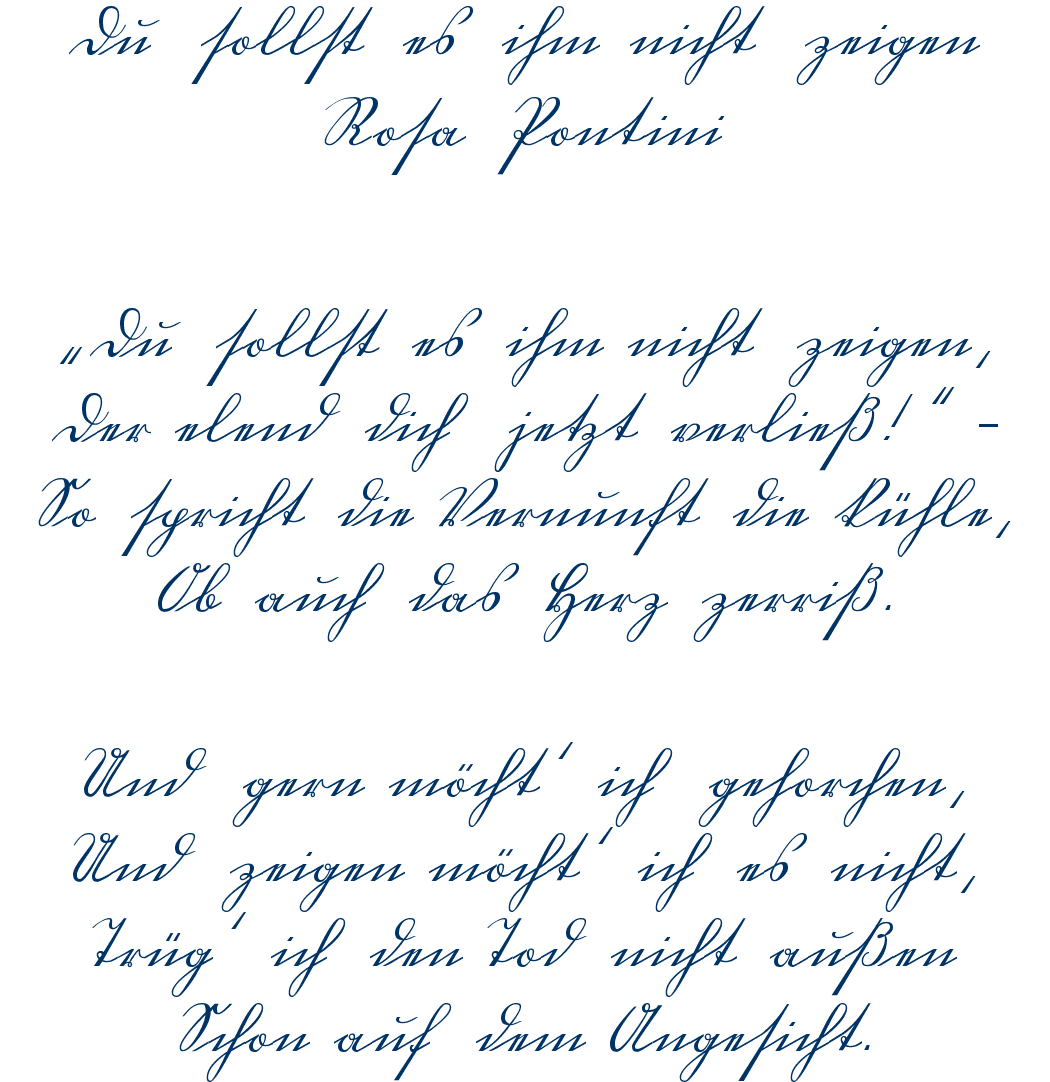 Du sollst es ihm nicht zeigen
Rosa Pontini
„Du sollst es ihm nicht zeigen,
Der elend dich jetzt verließ!“ –
So spricht die Vernunft die kühle,
Ob auch das Herz zerriß.
Und gern möcht' ich gehorchen,
Und zeigen möcht' ich es nicht,
Trüg' ich den Tod nicht außen
Schon auf dem Angesicht.